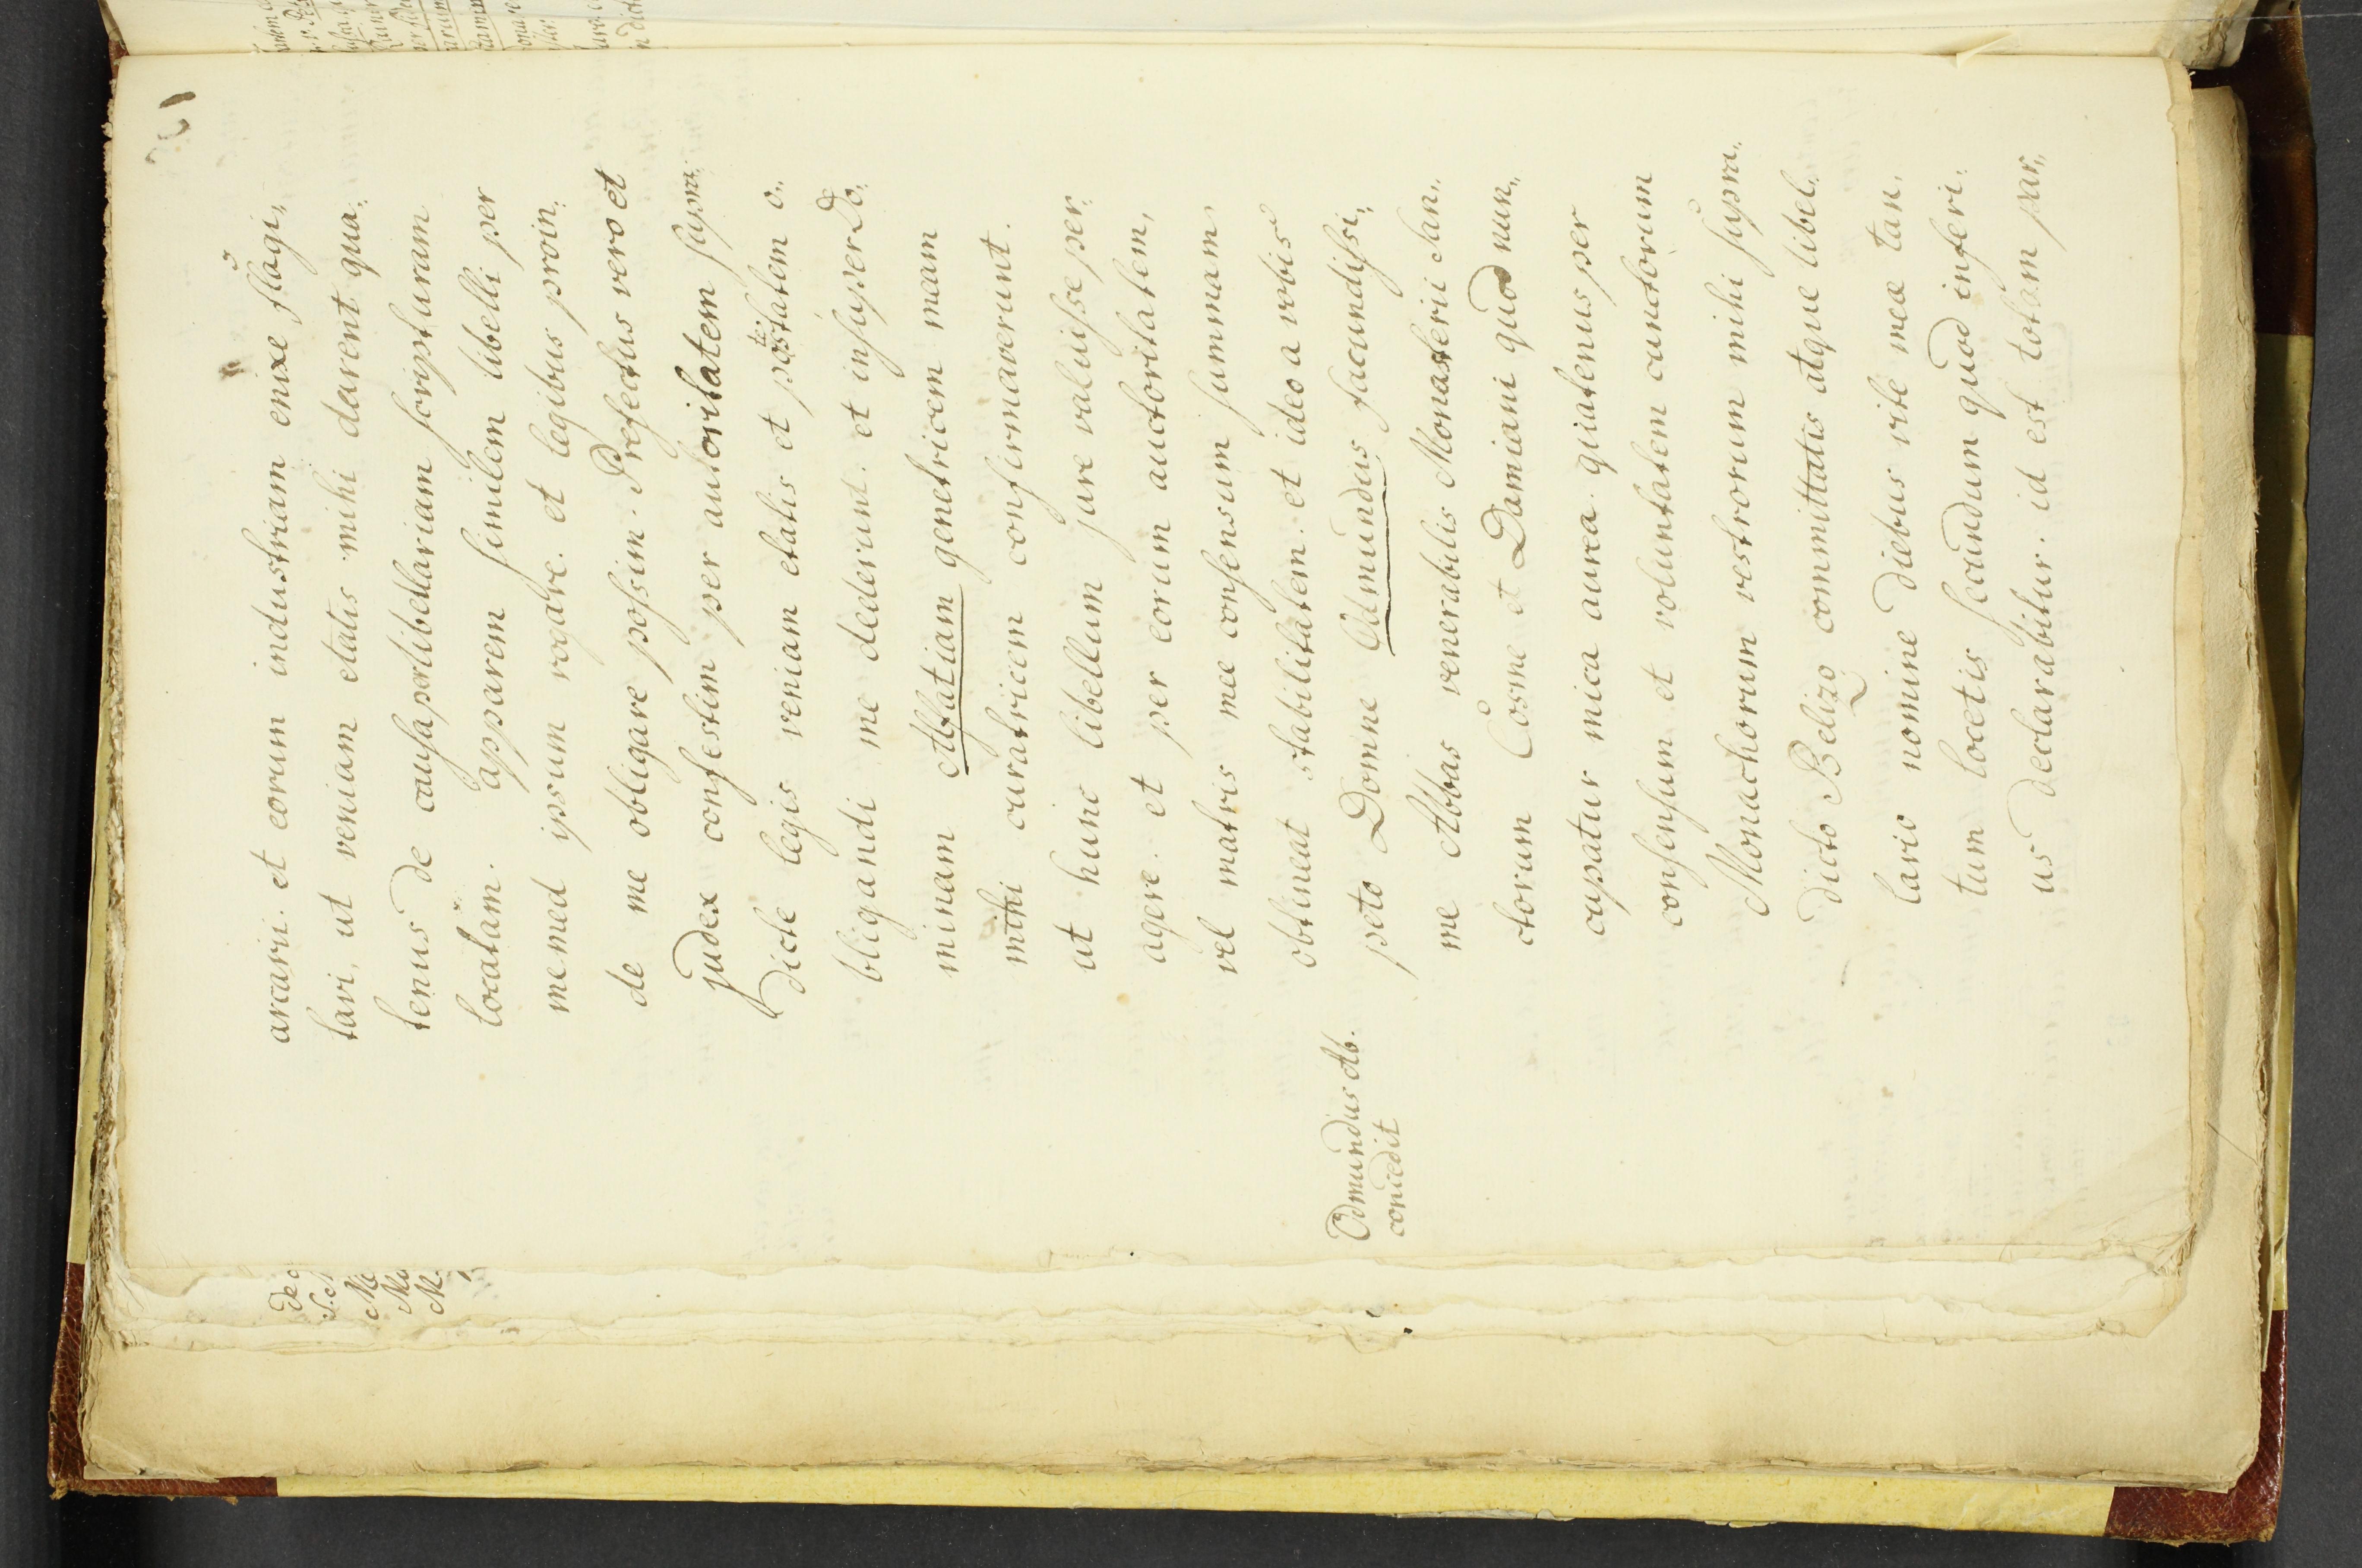 arcarii. et eorum industriam enixe flagi„
tavi, ut veniam etatis mihi darent qua„
tenus de causa perlibellariam scripturam
locatam. apparem similem libelli per
memed ipsum rogare. et legibus proin„
de me obligare possim. Prefectus vero et
judex confestim per autoritatem supra„
dicte legis veniam etatis et potestatem o„
bligandi me dederunt. et insuper Do„
minam Asfatiam genetricem meam
mihi curatricem confirmaverunt.
ut hunc libellum jure valuisse per„
agere. et per eorum auctoritatem,
vel matris mee consensum summam
obtineat stabilitatem. et ideo a vobis
peto Domne Odmundus facundissi„
me Abbas venerabilis Monasterii San„
ctorum Cosme et Damiani quod nun„
cupatur mica aurea. quatenus per
consensum et voluntatem cunctorum
Monachorum vestrorum mihi supra„
dicto Belizo committatis atque libel„
lario nomine diebus vite meæ tan„
tum locetis secundum quod inferi„
us declarabitur. id est totam par„
Odmundus Ab.
concedit